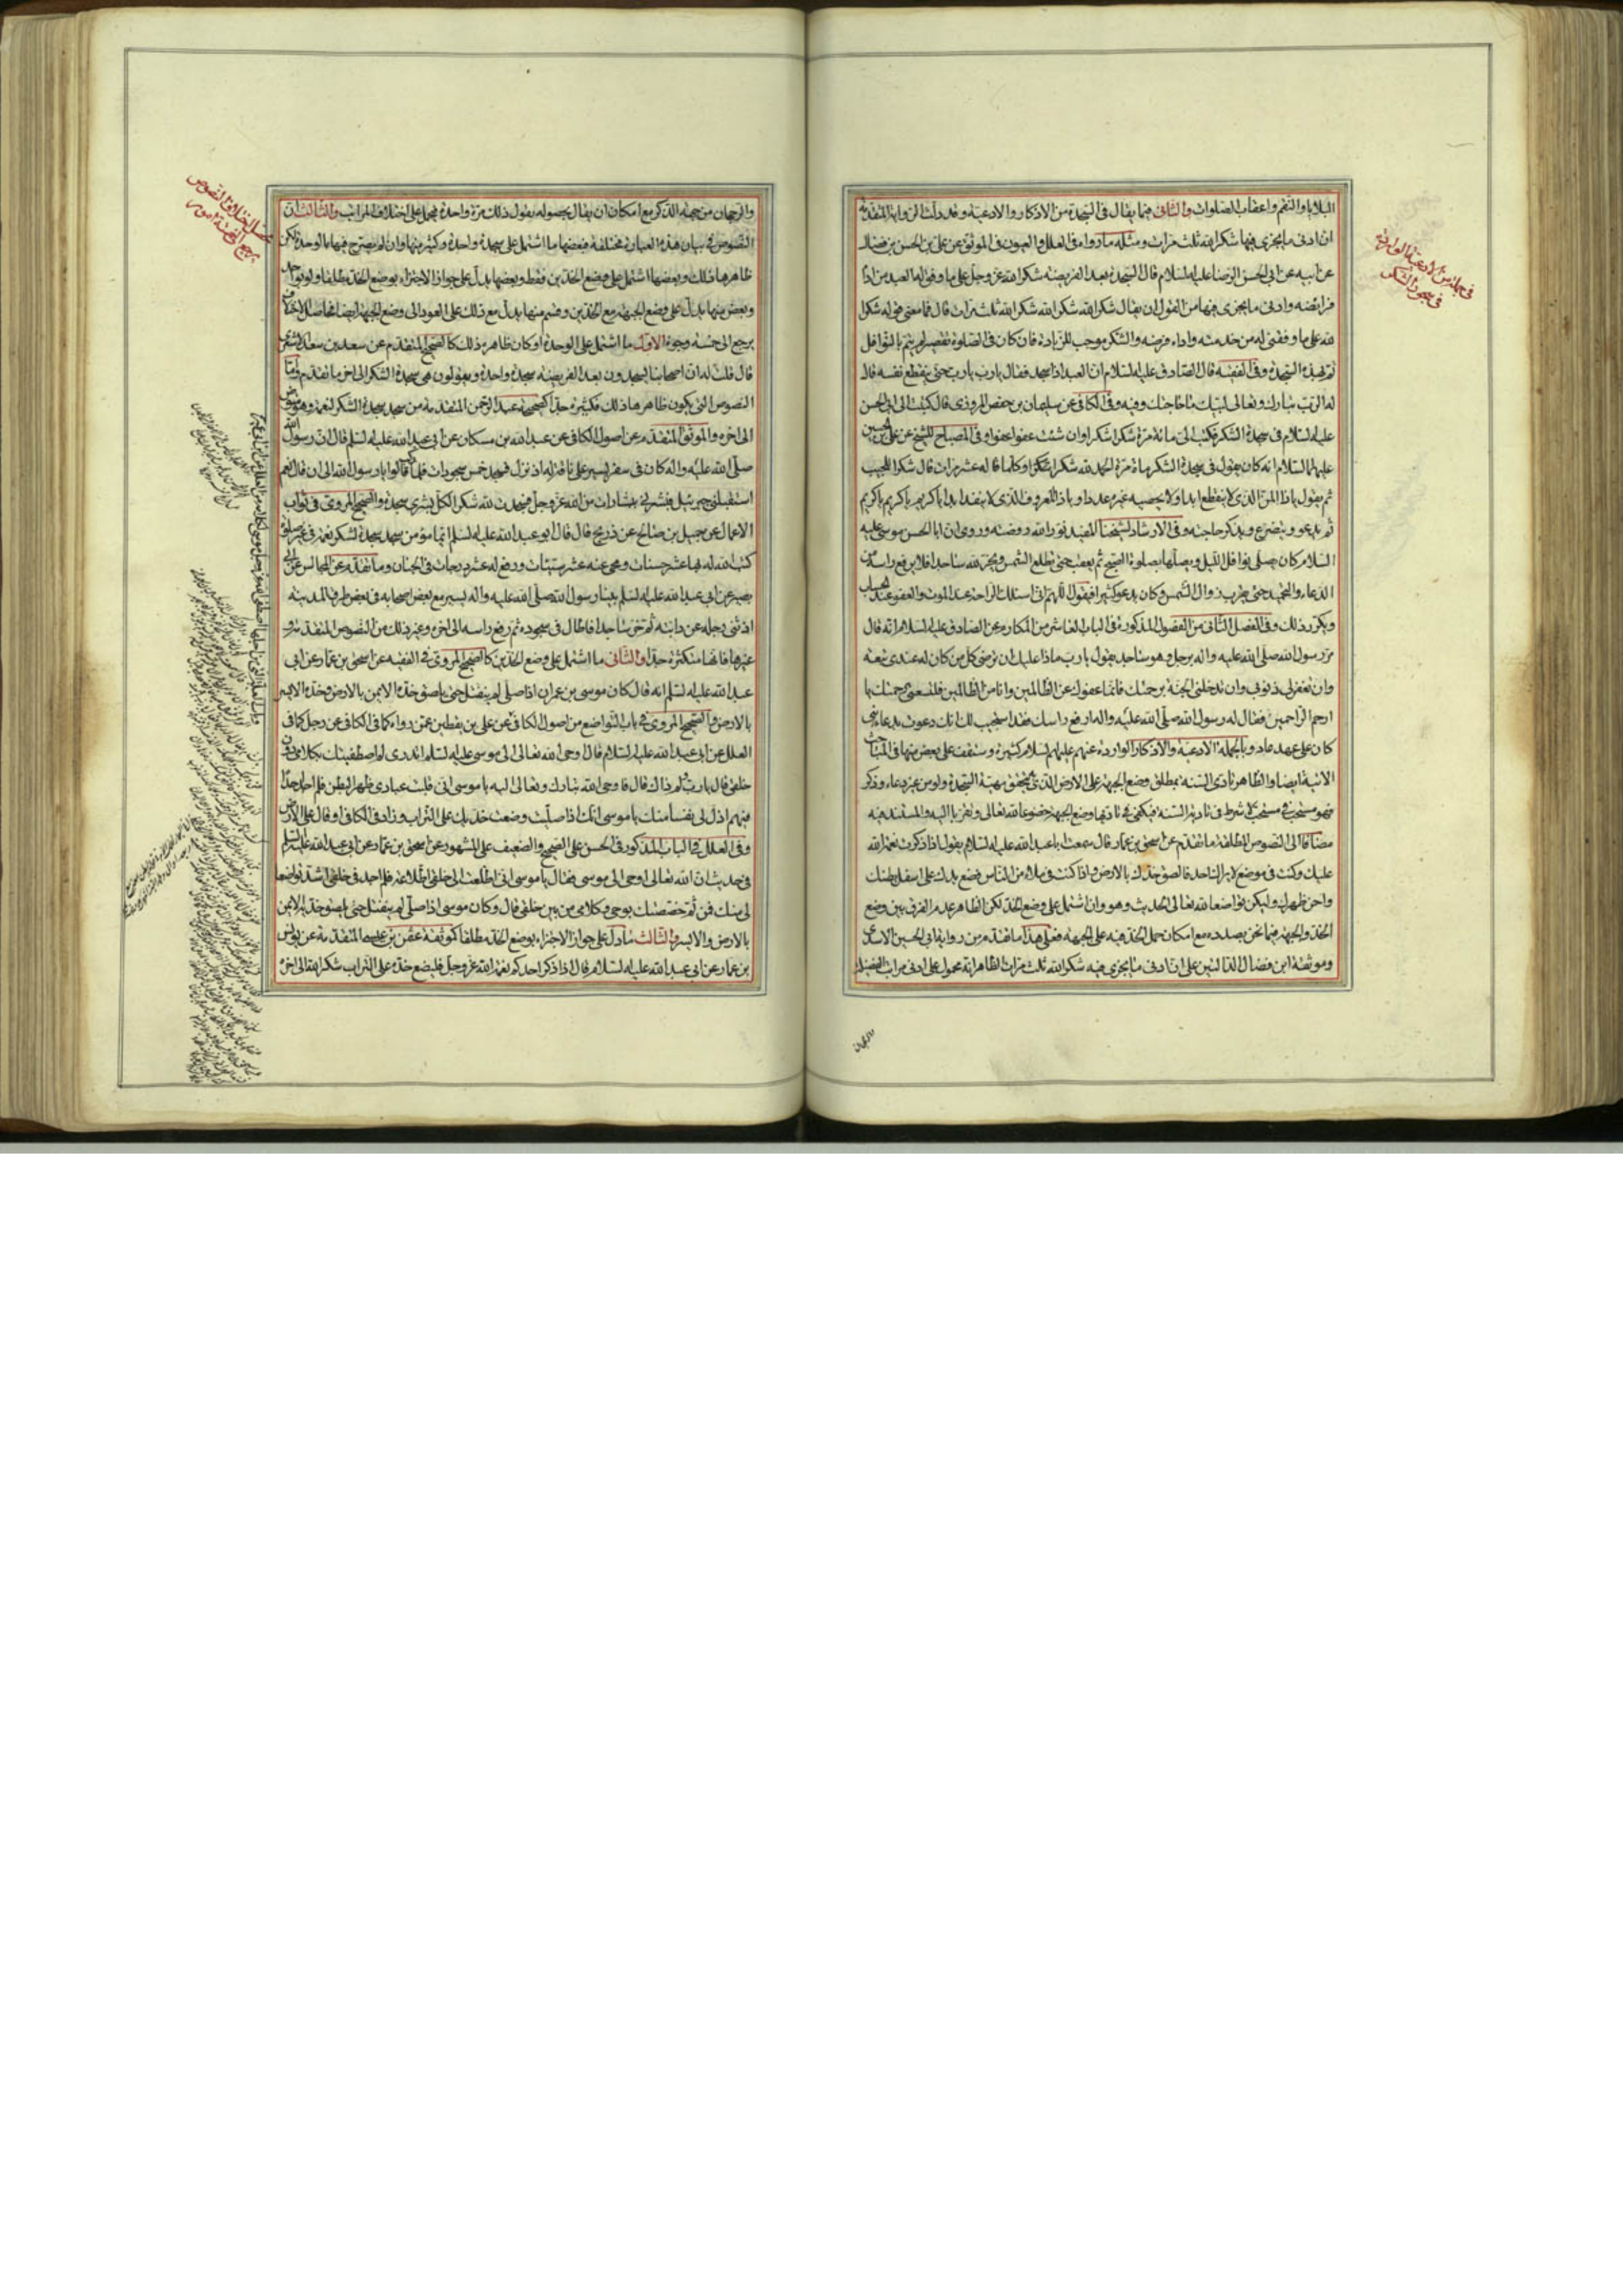 البلايا والنقم واعقاب الصلوات والثاني فيما يقال في السجدة من الاذكار والادعية وقد دلت الرواية المتقدمة
ان ادنى ما يجزي فيها شكرا لله ثلث مرات ومثله ما رواه في العلل والعيون في الموثق عن علي بن الحسن بن فضال
عن ابيه عن ابي الحسن الرضا عليه السلام قال السجدة بعد الفريضة شكرا لله عز وجل على ما وفق له العبد من اداء
فرائضه وادنى ما يجزي فيها من القول ان يقال شكرا لله شكرا لله شكرا لله ثلث مرات قال فما معنى قوله شكرا
لله على ما وفقني له من خدمته واداء فرضه والشكر موجب للزيادة فان كان في الصلوة تقصير لم يتم بالنوافل
تم بهذه السجدة وفي الفقيه قال الصادق عليه السلام ان العبد اذا سجد فقال يا رب يا رب حتى ينقطع نفسه قال
له الرب تبارك وتعالى لبيك ما حاجتك وفيه وفي الكافي عن سليمان بن حفص المروزي قال كتبت الى ابي الحسن
عليه السلام في سجدة الشكر فكتب الي مائة مرة شكرا شكرا وان شئت عفوا عفوا وفي المصباح للشيخ عن علي بن الحسين
عليهما السلام انه كان يقول في سجدة الشكر مائة مرة الحمد لله شكرا شكرا وكلما قاله عشر مرات قال شكرا للمجيب
ثم يقول يا ذا المن الذي لا ينقطع ابدا ولا يحصيه غيره عددا ويا ذا المعروف الذي لا ينفد ابدا يا كريم يا كريم يا كريم
ثم يدعو ويتضرع ويذكر حاجته وفي الارشاد لشيخنا المفيد نور الله روضته وروي ان ابا الحسن موسى عليه
السلام كان يصلي نوافل الليل ويصلها بصلوة الصبح ثم يعقب حتى تطلع الشمس ويخر لله ساجدا فلا يرفع راسه من
الدعاء والتحميد حتى يقرب زوال الشمس وكان يدعو كثيرا فيقول اللهم اني اسئلك الراحة عند الموت والعفو عند الحساب
ويكرر ذلك وفي الفصل الثاني من الفصول المذكورة في الباب العاشر من المكارم عن الصادق عليه السلام انه قال
مر رسول الله صلى الله عليه واله برجل وهو ساجد يقول يا رب ماذا عليك ان ترضي كل من كان له عندي تبعة
وان تغفر لي ذنوبي وان تدخلني الجنة برحمتك فانما عفوك عن الظالمين وانا من الظالمين فلتسعني رحمتك يا
ارحم الراحمين فقال له رسول الله صلى الله عليه واله ارفع راسك فقد استجيب لك انك دعوت بدعاء نبي
كان على عهد عاد وبالجملة الادعية والاذكار الواردة عنهم عليهم السلام كثيرة وستقف على بعض منها في المباحث
الاتية ايضا والظاهر تادي السنة بمطلق وضع الجبهة على الارض الذي يتحقق به هيئة السجدة ولو من غير دعاء وذكر
فهو مستحب في مستحب لا شرط في تادية السنة فيكفي في تاديتها وضع الجبهة خضوعا لله تعالى وتقربا اليه والمستند فيه
مضافا الى النصوص المطلقة ما تقدم عن اسحق بن عمار قال سمعت ابا عبد الله عليه السلام يقول اذا ذكرت نعمة الله
عليك وكنت في موضع لا يراك احد فالصق خدك بالارض واذا كنت في ملاء من الناس فضع يدك على اسفل بطنك
واحن ظهرك وليكن تواضعا لله تعالى الحديث وهو وان اشتمل على وضع الخد لكن الظاهر عدم الفرق بين وضع
الخد والجبهة فيما نحن بصدده مع امكان حمل الخد فيه على الجبهة فعلى هذا ما تقدم من رواية ابي الحسين الاسدي
وموثقة ابن فضال الدالتين على ان ادنى ما يجزي فيه شكرا لله ثلث مرات الظاهر انه محمول على ادنى مراتب الفضيلة
في جملة من الادعية الواردة
في سجود الشكر
والرجحان
والرجحان من جهة الذكر مع امكان ان يقال بحصوله بقول ذلك مرة واحدة فيحمل على اختلاف المراتب والثالث ان
النصوص في بيان هذه العبادة مختلفة فبعضها ما اشتمل على سجدة واحدة وكثير منها وان لم يصرح فيها بالوحدة لكن
ظاهرها ذلك وبعضها اشتمل على وضع الخدين فقط وبعضها يدل على جواز الاجتزاء بوضع الخد مطلقا ولو بوحدة
وبعض منها يدل على وضع الجبهة مع الخدين وقسم منها يدل مع ذلك على العود الى وضع الجبهة ايضا فحاصل الاختلاف
يرجع الى خمسة وجوه الاول ما اشتمل على الوحدة او كان ظاهره ذلك كالصحيح المتقدم عن سعد بن سعد الاشعري
قال قلت له ان اصحابنا يسجدون بعد الفريضة سجدة واحدة ويقولون هي سجدة الشكر الى اخر ما تقدم واما
النصوص التي يكون ظاهرها ذلك فكثيرة جدا كصحيحة عبد الرحمن المتقدمة من سجد سجدة الشكر لنعمة وهو متوض
الى اخره والموثق المتقدم عن اصول الكافي عن عبد الله بن مسكان عن ابي عبد الله عليه السلم قال ان رسول الله
صلى الله عليه واله كان في سفر يسير على ناقة له اذ نزل فسجد خمس سجدات فلما ركب قالوا يا رسول الله الى ان قال نعم
استقبلني جبرئيل فبشرني ببشارات من الله عز وجل فسجدت لله شكرا لكل بشرى سجدة والصحيح المروي في ثواب
الاعمال عن جميل بن صالح عن ذريح قال قال ابو عبد الله عليه السلم ايما مؤمن سجد سجدة لشكر نعمة في غير صلوة
كتب الله له بها عشر حسنات ومحى عنه عشر سيئات ورفع له عشر درجات في الجنان وما تقدم عن المجالس عن ابي
بصير عن ابي عبد الله عليه السلم بينا رسول الله صلى الله عليه واله يسير مع بعض اصحابه في بعض طرق المدينة
اذ ثنى رجله عن دابته ثم خر ساجدا فاطال في سجوده ثم رفع راسه الى اخره وغير ذلك من النصوص المتقدمة و
غيرها فانها متكثرة جدا والثاني ما اشتمل على وضع الخدين كالصحيح المروي في الفقيه عن اسحق بن عمار عن ابي
عبد الله عليه السلم انه قال كان موسى بن عمران اذا صلى لم ينفتل حتى يلصق خده الايمن بالارض وخده الايسر
بالارض والصحيح المروي في باب التواضع من اصول الكافي عن علي بن يقطين عمن رواه كما في الكافي عن رجل كما في
العلل عن ابي عبد الله عليه السلام قال اوحى الله تعالى الى موسى عليه السلم اتدري لم اصطفيتك بكلامي دون
خلقي قال يا رب ولم ذاك قال فاوحى الله تبارك وتعالى اليه يا موسى اني قلبت عبادي ظهرا لبطن فلم اجد احدا
فيهم اذل لي نفسا منك يا موسى انك اذا صليت وضعت خدك على التراب وزاد في الكافي او قال على الارض
وفي العلل في الباب المذكور في الحسن على الصحيح والضعيف على المشهور عن اسحق بن عمار عن ابي عبد الله عليه السلم
في حديث ان الله تعالى اوحى الى موسى فقال يا موسى اني اطلعت الى خلقي اطلاعة فلم اجد في خلقي اشد تواضعا
لي منك فمن ثم خصصتك بوحيي وكلامي من بين خلقي قال وكان موسى اذا صلى لم ينفتل حتى يلصق خده الايمن
بالارض والايسر والثالث ما دل على جواز الاجتزاء بوضع الخد مطلقا كموثقة عثمن بن عيسى المتقدمة عن يونس
بن عمار عن ابي عبد الله عليه السلام قال اذا ذكر احدكم نعمة الله عز وجل فليضع خده على التراب شكرا لله الى اخره
حاصل اختلاف النصوص
يرجع الى خمسة امور